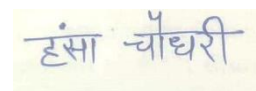 हंसा चौधरी